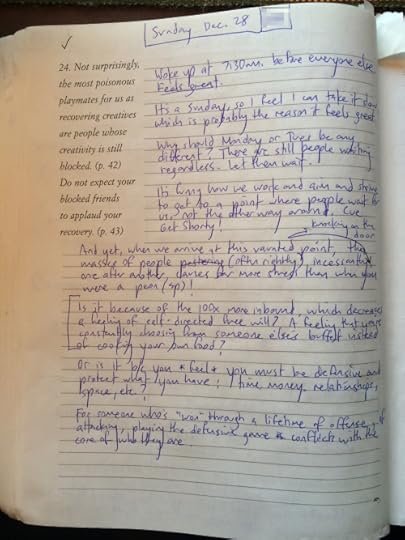 Sunday Dec. 28
24. Not surprisingly,
the most poisonous
playmates for us as
recovering creatives
are people whose
creativity is still
blocked. (p. 42)
Do not expect your
blocked friends
to applaud your
recovery. (p. 43)
Woke up at 7:30am, before everyone else.
Feels great.
It's a Sunday, so I feel I can take it slow
which is probably the reason it feels great.
Why should Monday or Tues be any
different? There are still people waiting
regardless. Let them wait.
It's funny how we work and aim and strive
to get to a point where people wait for
us, not the other way around. Cue
Get Shorty!
knocking on the
door
And yet, when we arrive at this vaunted point, the
masses of people (often rightly), incessantly,
one after another, carries far more stress than when you
were a peon (sp)!
Is it because of the 100x more inbound, which decreases
a feeling of self-directed free will? A feeling that you're
constantly choosing from someone else's buffet instead
of cooking your own food?
Or is it b/c you *feel* you must be defensive and
protect what you have? (time, money, relationships,
space, etc.)
For someone who's "won" through a lifetime of offense, of
attacking, playing the defensive game conflicts with the
core of who they are.